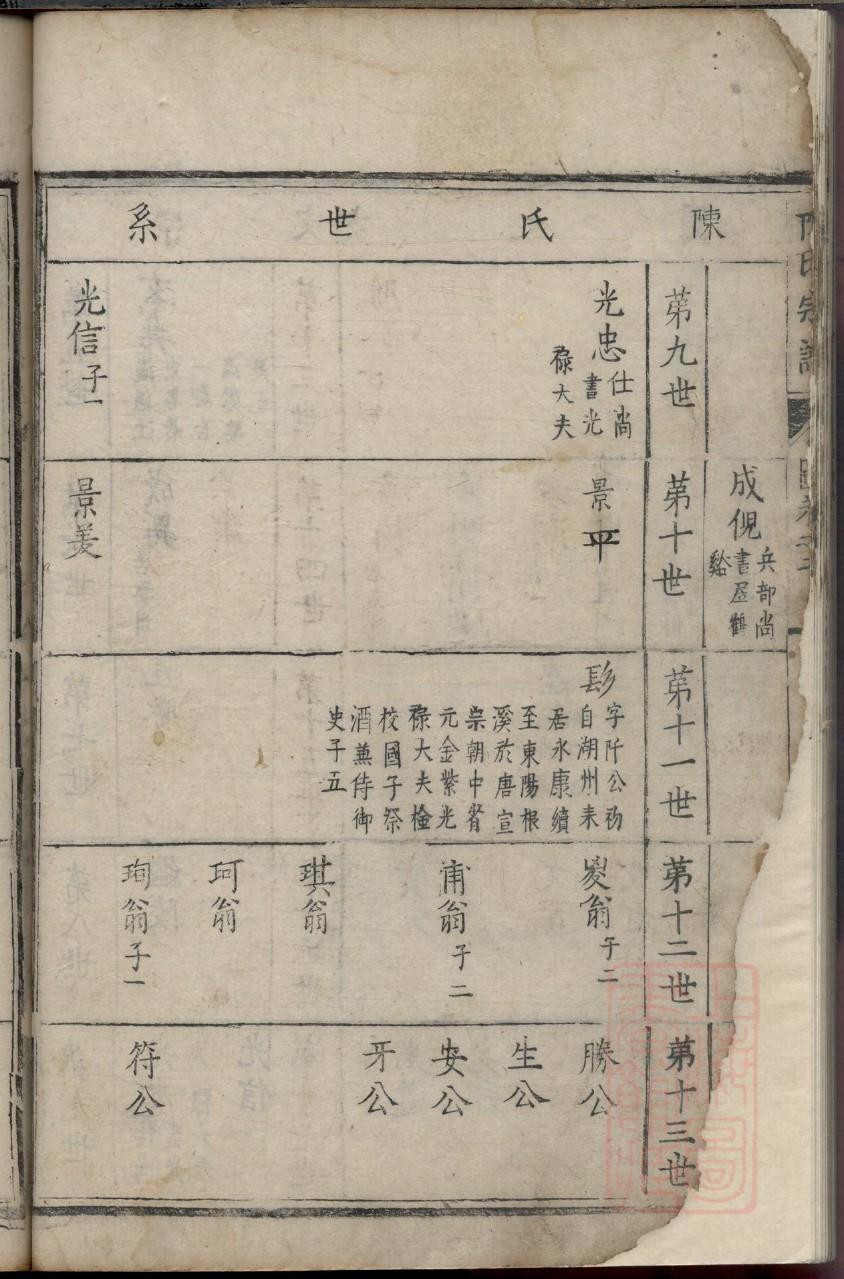 陳氏世系
成倪
兵部尚
書居鶴
谿
第九世
第十世
第十一世
第十二世
第十三世
光忠
仕尚
書光
祿大夫
光信子一
景平
景美
字阡公初
自湖州來
居永康續
至東陽根
溪於唐宣
宗朝中省
元金紫光
祿大夫檢
校國子祭
酒兼侍御
史子五
翁子二
甫翁子二
琪翁
珂翁
珣翁子一
勝公
生公
安公
牙公
符公